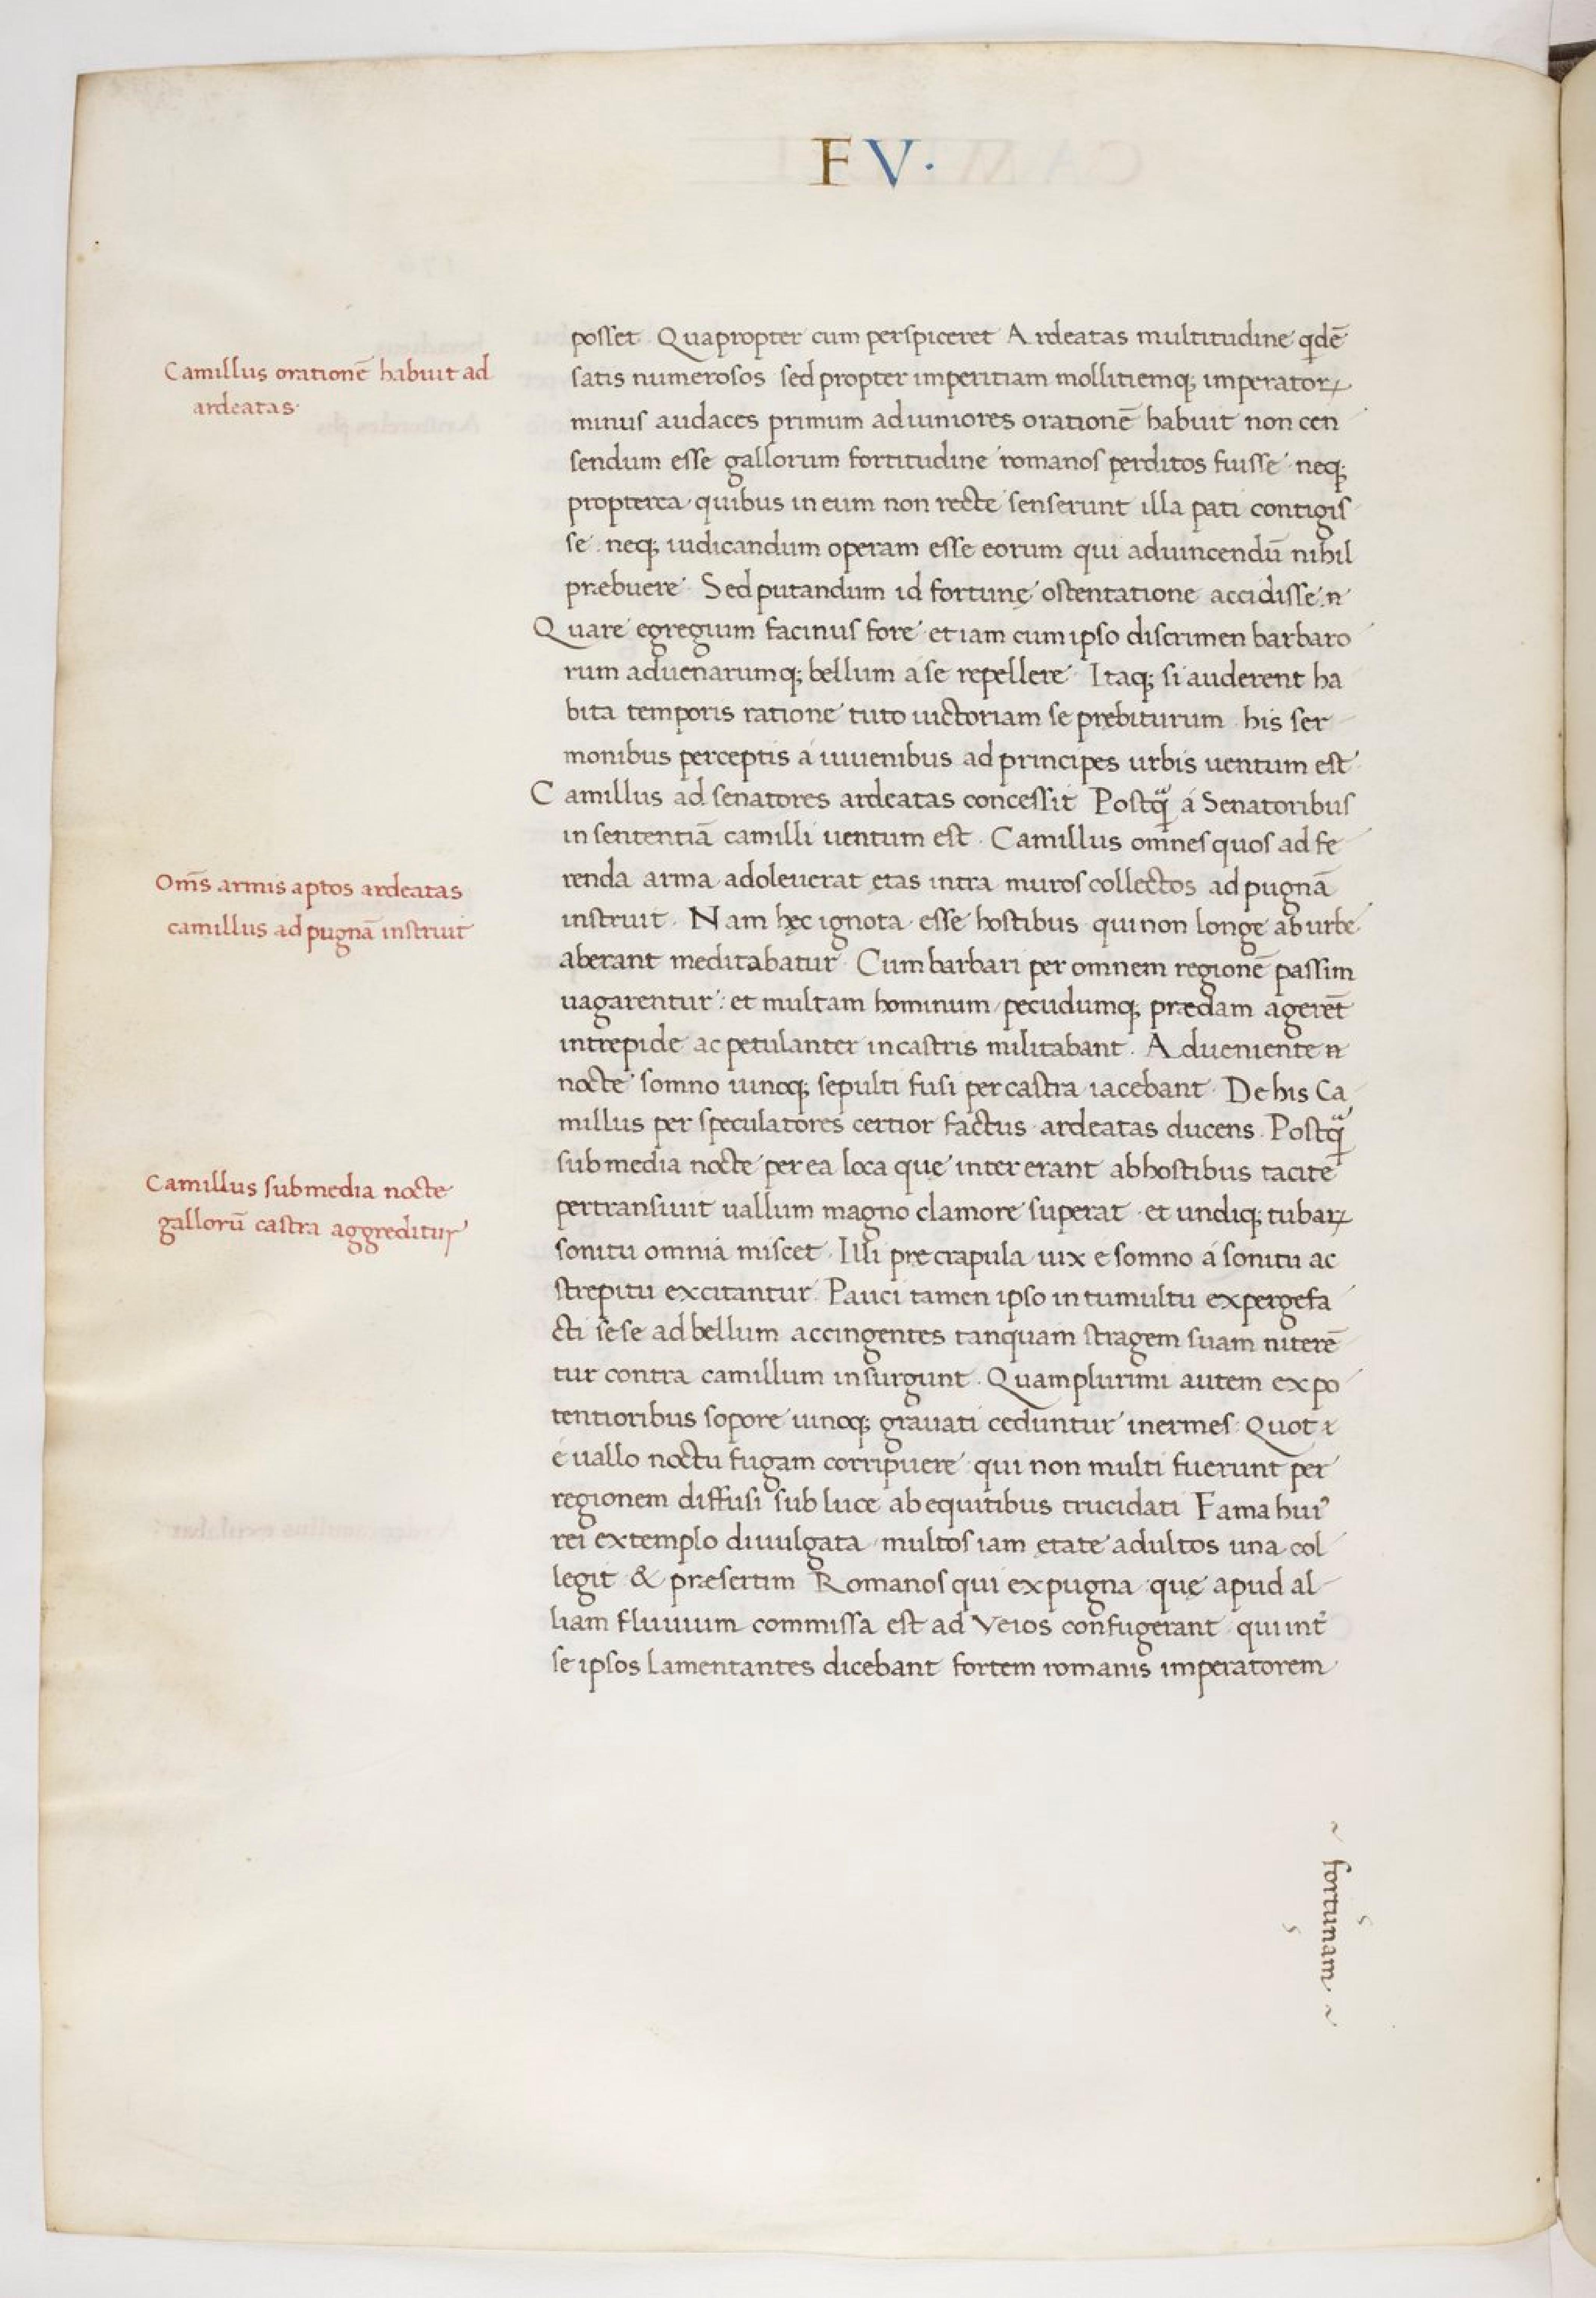 F V ·
posset · Quapropter cum perspiceret Ardeatas multitudine qdē
Camillus orationē habuit ad
ardeatas ·
satis numerosos sed propter imperitiam mollitiemq; imperatoꝝ
minus audaces primum ad iuniores orationē habuit non cen
sendum esse gallorum fortitudine romanos perditos fuisse · neq;
propterea quibus in eum non recte senserunt illa pati contigis
se · neq; iudicandum operam esse eorum qui ad uincendū nihil
præbuere · Sed putandum id fortunę ostentatione accidisse ·
Quare egregium facinus fore et iam cum ipso discrimen barbaro
rum aduenarumq; bellum a se repellere · Itaq; si auderent ha
bita temporis ratione tuto uictoriam se prębiturum his ser
monibus perceptis á iuuenibus ad principes urbis uentum est ·
Camillus ad senatores ardeatas concessit Postq̃ á Senatoribus
in sententiā camilli uentum est · Camillus omnes quos ad fe
Om̄s armis aptos ardeatas
camillus ad pugnā instruit
renda arma adoleuerat ętas intra muros collectos ad pugnā
instruit · Nam hęc ignota esse hostibus qui non longe ab urbe
aberant meditabatur · Cum barbari per omnem regionē passim
uagarentur : et multam hominum pecudumq; prædam agerēt
intrepide ac petulanter in castris militabant · Adueniente
nocte somno uinoq; sepulti fusi per castra iacebant · De his Ca
millus per speculatores certior factus ardeatas ducens · Postq̃
Camillus sub media nocte
gallorū castra aggreditur
sub media nocte per ea loca que inter erant ab hostibus tacite
pertransiuit uallum magno clamore superat · et undiq; tubaꝝ
sonitu omnia miscet · Illi pre crapula uix é somno á sonitu ac
strepitu excitantur · Pauci tamen ipso in tumultu expergefa
cti sese ad bellum accingentes tanquam stragem suam niterē
tur contra camillum insurgunt · Quamplurimi autem ex po
tentioribus sopore uinoq; grauati ceduntur inermes · Quot
é uallo noctu fugam corripuere qui non multi fuerunt per
regionem diffusi sub luce ab equitibus trucidati Fama hui᾽
rei extemplo diuulgata multos iam ętate adultos una col
legit & præsertim Romanos qui ex pugna quę apud al
liam fluuium commissa est ad Veios confugerant qui int̉
se ipsos lamentantes dicebant fortem romanis imperatorem
~ fortunam ~